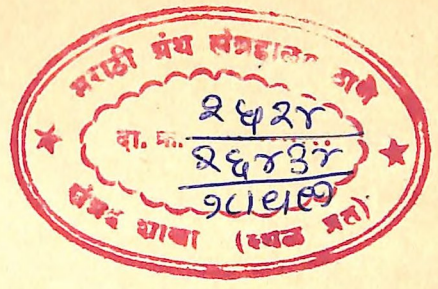 मराठी ग्रंथ संग्रहालय ठाणे
दा. क्र. २५२४
२६४३४
संग्रह शाखा (स्थळ प्रत)